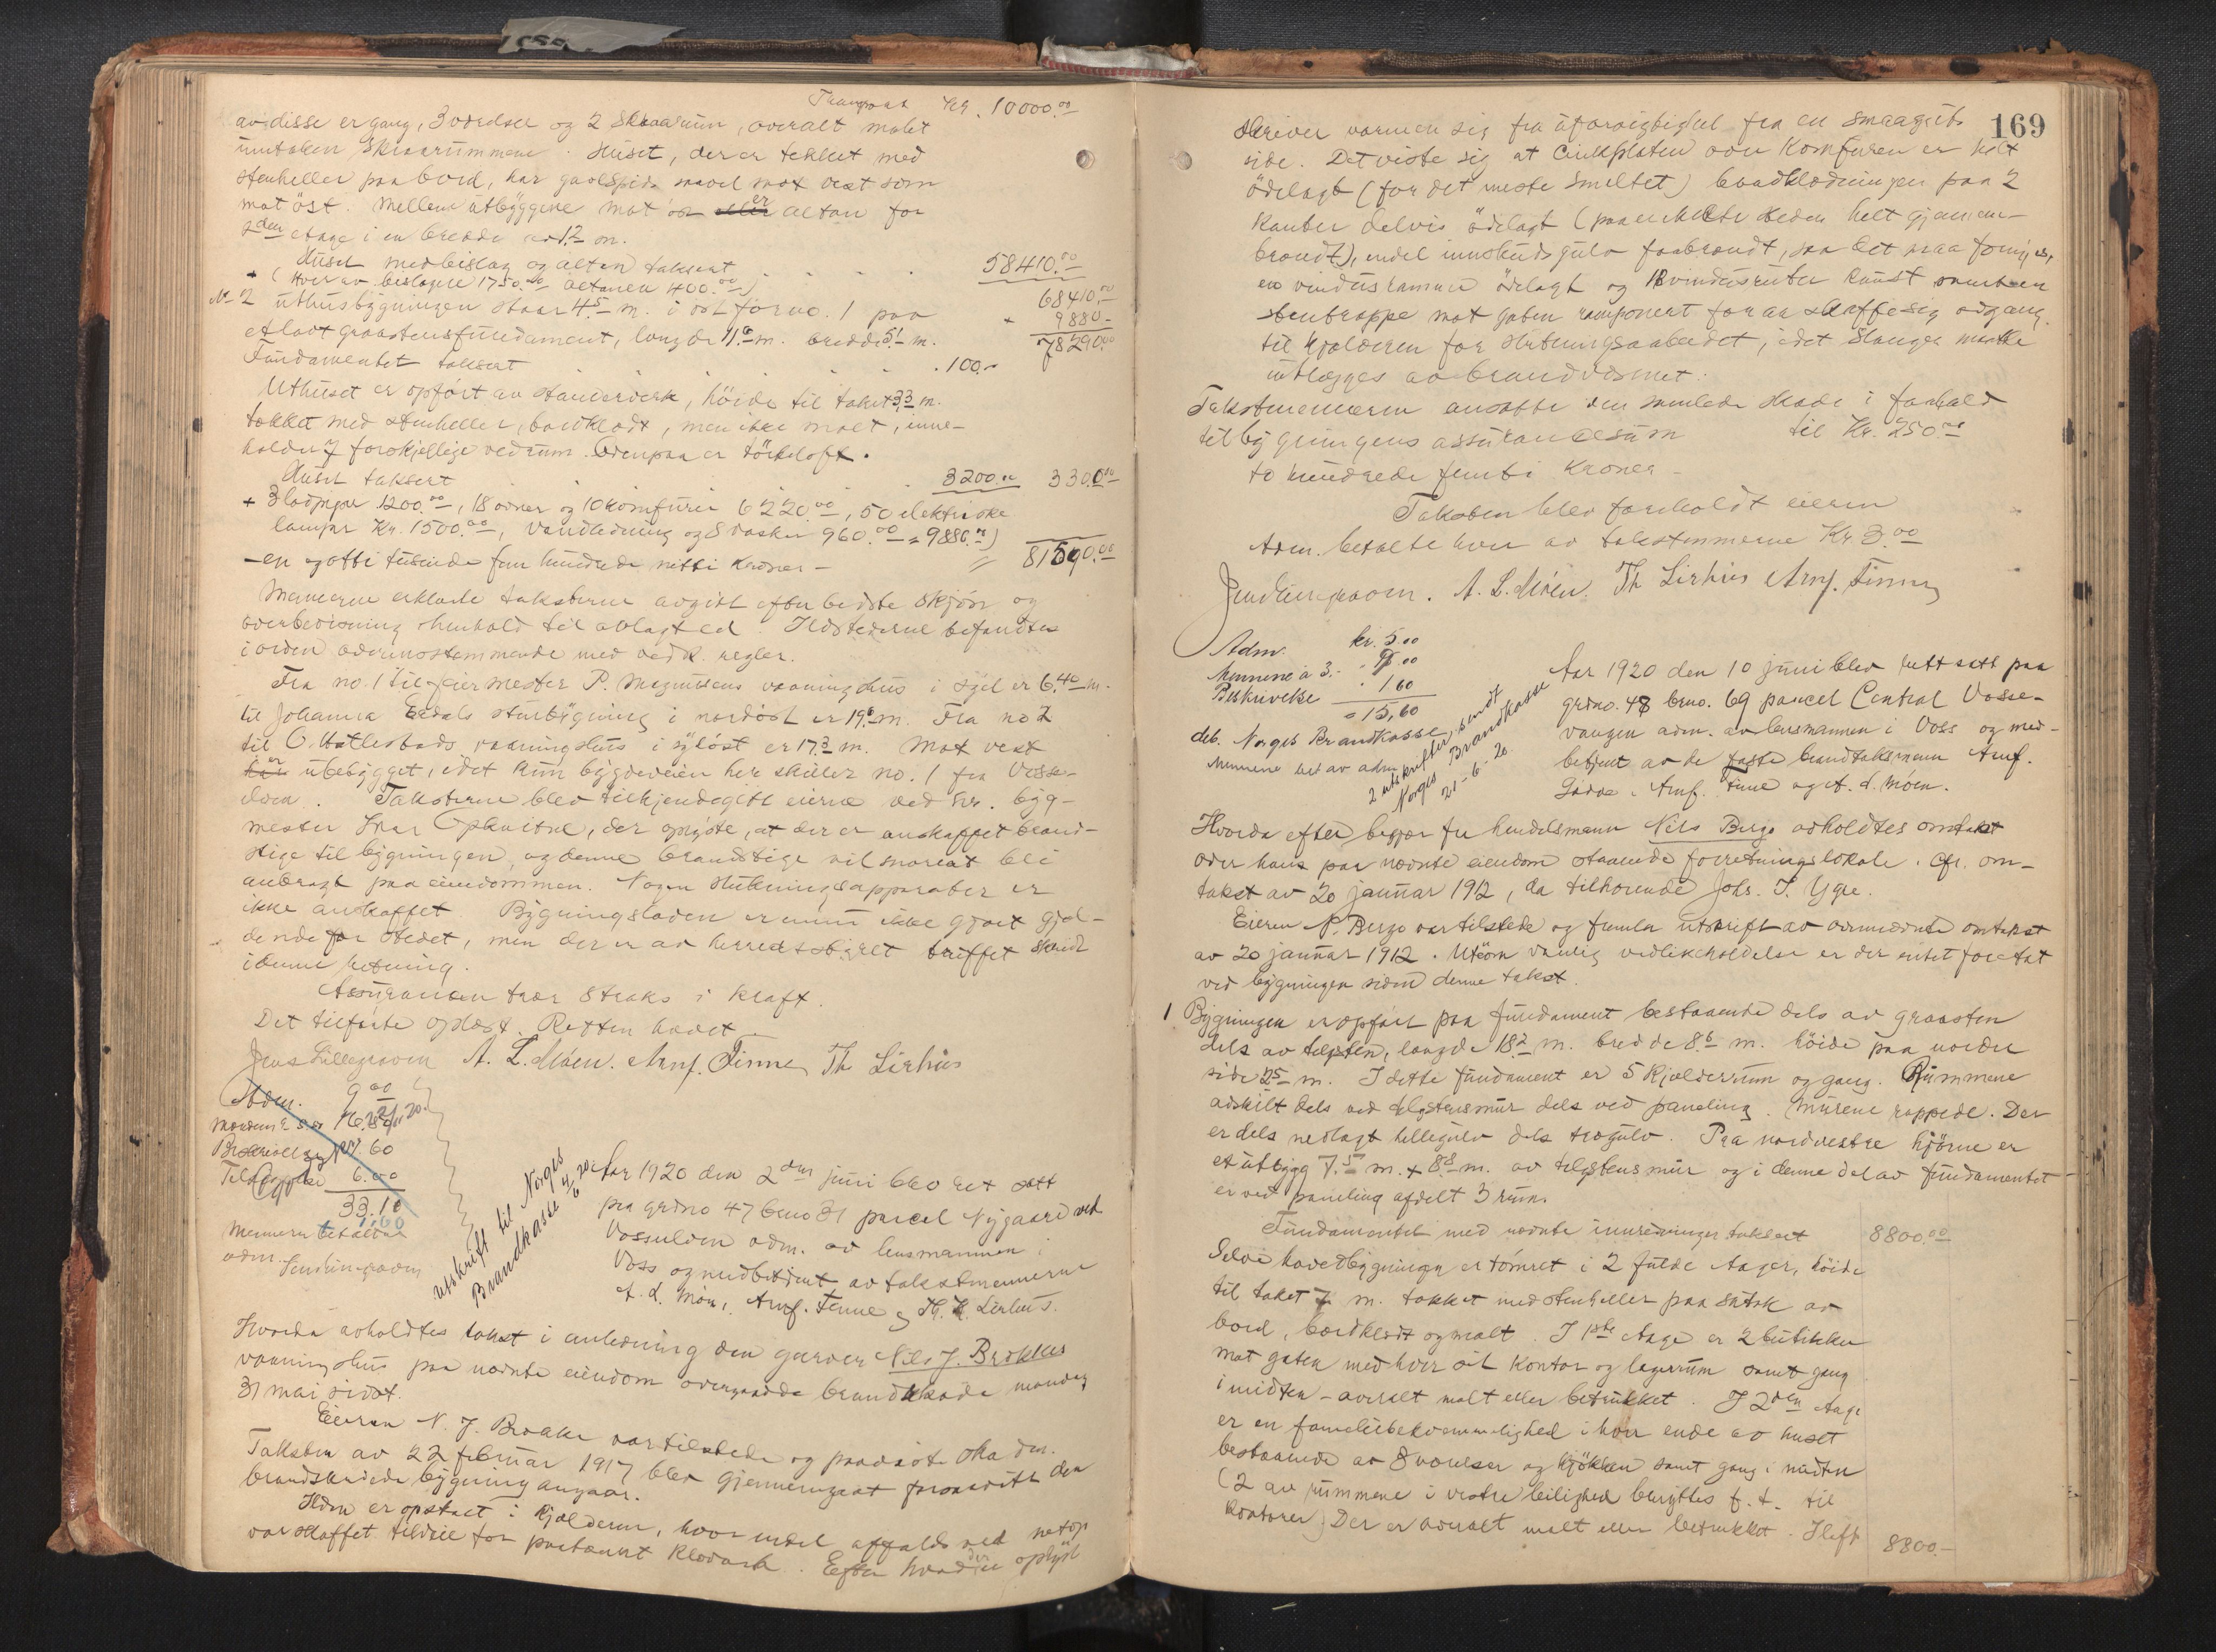 Transport Kr. 10000.00
av disse er gang, 3 værelser og 2 skraarum, overalt malet
undtaken skraarummene. Huset, der er tekket med
stenheller paa bord, har gavlspids saavel mot vest som
mot öst. Mellem utbyggene mot öst er altan for
2den etage i en bredde av 1.2 m.
Huset med beslag og altan taksert 58410.00
(Hver av beslagene 1750.00 altanen 400.00)
68410.00
No 2 uthusbygningen staar 4.5 m. i öst for no. 1 paa
+ 9880.-
et lavt graastensfundament, længde 11.6 m. bredde 5.1 m.
78290.00
Fundamentet taksert 100.-
Uthuset er opfört av stenderverk, höide til taket 3.3 m.
tekket med stenheller, bordklædt, men ikke malt, inne-
holder 7 forskjellige vedrum. Ovenpaa er törkeloft.
Huset taksert 3200.00 3300.00
+ 3 ladpiper 1200.00, 18 ovner og 10 komfurer 6220.00, 50 elektriske
lamper Kr. 1500.00, vandledning og 8 vasker 960.00 = 9880.00)
- en og otti tusinde fem hundrede nitti kroner - = 81590.00
Mennerne erklærte taksterne avgit efter bedste skjön og
overbevisning i henhold til avlagt ed. Ildstederne befandtes
i orden overensstemmende med vedk. regler.
Fra no. 1 til feiermester P. Magnussens vaaningshus i syd er 6.40 m.
til Johanna Endals stuebygning i nordöst er 19.6 m. Fra no 2
til O. Hatlestads vaaningshus i sydöst er 17.3 m. Mot vest
er ubebygget, idet kun bygdeveien her skiller no. 1 fra Vosse-
elven. Taksterne blev tilkjendegitt eierne ved hr. byg-
mester Ivar Opkvitne, der oplyste, at der er anskaffet brand-
stige til bygningen, og denne brandstige vil snarest bli
anbragt paa eiendommen. Nogen slukningsapparater er
ikke anskaffet. Bygningsloven er ennu ikke gjort gjæl-
dende for stedet, men der er av herredsstyret truffet skrid
i denne retning.
Assurancen træer straks i kraft.
Det tilförte oplæst. Retten hævet.
Jens Lillegraven A. L. Möen. Arnf. Finne Th Lirhus
Adm. 9.00
Beskrivelse 1.60
6.00
33.10
Mennerne betalt av
adm.
Utskrift til Norges
Brandkasse 4/6 20.
Aar 1920 den 2den juni blev ret satt
paa grdno 47 brno 31 parcel Nygaard ved
Vossulven adm. av lensmannen i
Voss og medbetjent av takstmennerne
A. L. Möen, Arnf. Finne og Th. K. Lirhus.
Hvorda avholdtes takst i anledning den garver Nils J. Brekkes
vaaningshus paa nævnte eiendom overgaaede brandskade mandag
31 mai sidst.
Eieren N. J. Brække var tilstede og paaviste skaden.
Taksten av 22 februar 1917 blev gjennemgaat forsaavitt den
brandskadede bygning angaar.
Ilden er opstaat i kjælderen, hvor endel affalds ved netop
var skaffet tilveie for paatænkt klævask. Efter hvad der er oplyst
169
skriver varmen sig fra uforsigtighet fra en smaaguts
side. Det viste sig at Cinkplaten over komfuren er helt
ödelagt (for det meste smeltet) bordklædningen paa 2
kanter delvis ödelagt (paa enkelte steder helt gjennem-
brændt), endel innskudsgulv forbrændt, saa det maa fornyes,
en vindusramme ödelagt og 12 vindusruter knust samt en
stentrappe mot gaten ramponert for at skaffe sig adgang
til kjælderen for slukningsarbeidet, idet slanger maatte
utlægges av brandvæsenet.
Takstmennerne ansatte den samlede skade i forhold
til bygningens assurancesum til Kr. 250.00
to hundrede femti kroner -
Taksten blev foreholdt eieren
Adm. betalte hver av takstmennerne Kr 3.00
Jens Lillegraven. A. L. Möen. Th Lirhus Arnf. Finne
Adm. kr. 5.00
Mennene à 3.- - 9.00
Beskrivelse - 1.60
= 15,60
deb. Norges Brandkasse
Mennene bet av adm.
2 utskrifter sendt
Norges Brandkasse
21-6-20.
Aar 1920 den 10 juni blev rett satt paa
grdno. 48 brno. 69 parcel Central Vosse-
vangen adm. av lensmannen i Voss og med-
betjent av de faste brandtaksmenn Arnf.
Gjerde, Arnf. Finne og A. L. Möen.
Hvorda efter begjær fra handelsmann Nils Bergo avholdtes omtakst
over hans paa nævnte eiendom staaende forretningslokale. Cfr. om-
takst av 20 januar 1912, da tilhörende Johs. S. Ygre.
Eieren N. Bergo var tilstede og fremla utskrift av ovennævnte omtakst
av 20 januar 1912. Utom vanlig vedlikeholdelse er der intet foretat
ved bygningen siden denne takst.
1 Bygningen er opfört paa fundament bestaaende dels av graasten
dels av teglsten, længde 18.2 m. bredde 8.6 m. höide paa nordre
side 2.5 m. I dette fundament er 5 kjælderrum og gang. Rummene
adskilt dels ved teglstensmur dels ved paneling. Murene rappede. Der
er dels nedlagt hellegulv dels trægulv. Paa nordvestre hjörne er
et utbygg 7.5 m. + 8.8 m. av teglstensmur og i denne del av fundamentet
er ved paneling afdelt 3 rum.
Fundamentet med nævnte innredninger taksert 8800.00
Selve hovedbygningen er tömret i 2 fulde etager, höide
til taket 7 m. tækket med stenheller paa sutak av
bord, bordklædt og malt. I 1ste etage er 2 butikker
mot gaten med hver sit kontor og lagerrum samt gang
i midten - overalt malt eller betrukket. I 2den etage
er en familiebekvemmelighed i hver ende av huset
bestaaende av 8 værelser og kjökken samt gang i midten
(2 av rummene i vestre leilighed benyttes f. t. til
kontorer) Der er overalt malt eller betrukket. I loft
8800.-